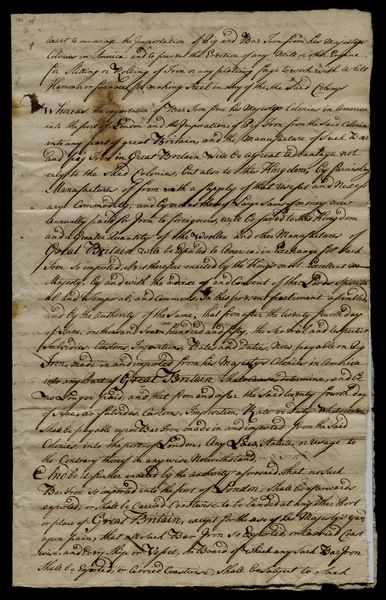 an act to encourage the Importation of Pig and Bar Iron from his Majestys
Colonies in America and to prevent the Erection of any Mill or other Engine
for Slitting or Rolling of Iron or any plating forge to work with a Tilt
Hammer or furnace for making Steel in any of the the Said Colony
Whereas the importation of Bar Iron from his Majestys Colonies in America
into the port of London and the Importation of Pig Iron from the Said Colonies
into any port of great Britain, and the Manufacture of Such Bar
and pig Iron in Great Britain will be a great advantage not
only to the Said Colonies, but also to this Kingdom, by furnishing
Manufacturers of Iron with a Supply of that usefull and Neces
ary Commodity, and by means thereof Large Sums of money now
Annually paid for Iron to foreigners will be saved to this Kingdom
and a Greater Quantity of the Woollen and other Manufactures of
Great Britain will be Exported to America in Exchange for Such
Iron So imported, be it therefore enacted by the Kings most Excellent
Majesty, by and with the advice and Consent of the Lords Spiritu
al and Temporal and Commons, In this present parliament assembled
and by the authority of the Same, that from after the twenty fourth day
of June, one thousand Seven hundred and fifty, the Several and respective
Subsidies, Customs, Impositions, Rates and Duties, Now payable on Pig
Iron, made in and imported from his Majestys Colonies in America
into any Part of Great Britain, Shall cease determine, and be
no Longer paid, and that from and after the Said twenty fourth day
of June no Subsidies, Custom, Imposition, Rate or Duty whatsoever
Shall be payable upon Bar Iron made in and imported from the Said
Colonies into the port of London, Any Law, Statute, or usage to
the Contrary thereof in any wise Notwithstanding
And be it further enacted by the authority aforesaid, that no Such
Bar Iron So imported into the port of London, Shall be afterwards
exported, or Shall be Carried Coastwise to be Landed at any other Port
or place of Great Britain, except for the use of his Majestys
that all Such Bar Iron So Exported or Carried Coast
wise and Every Ship or Vessel, on Board of which any Such Bar Iron
Shall be Exported, or Carried Coastwise, Shall be Subject to Such